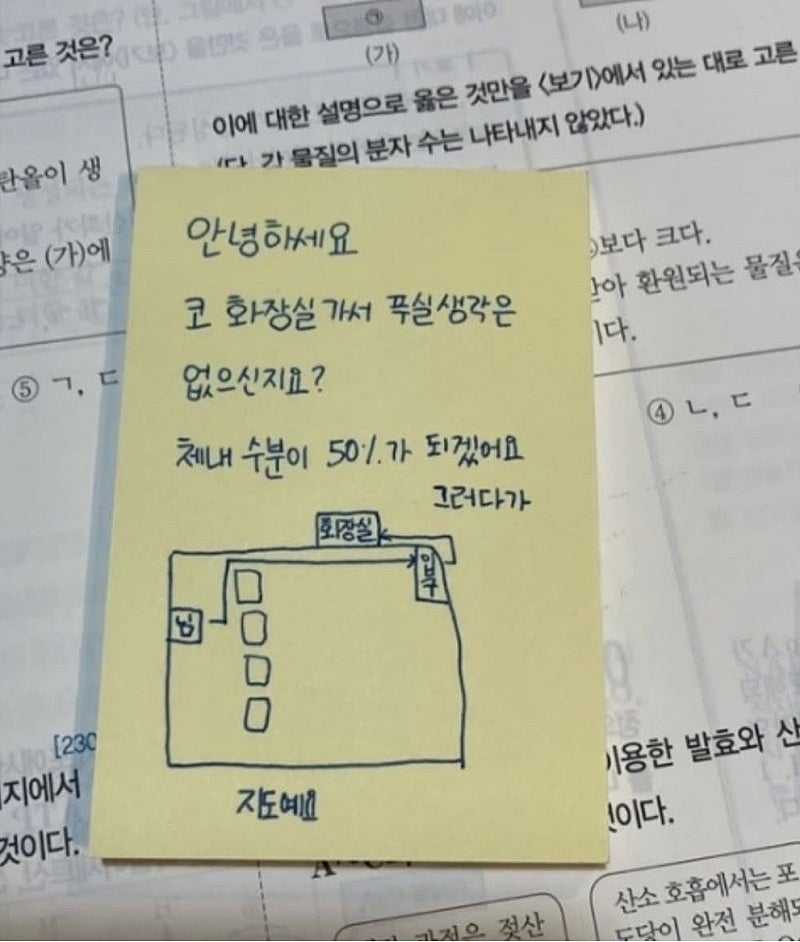 고른 것은?
(가)
(나)
이에 대한 설명으로 옳은 것만을 <보기>에서 있는 대로 고른
(단, 각 물질의 분자 수는 나타내지 않았다.)
탄올이 생
은 (가)에
보다 크다.
환원되는 물질은
이다.
⑤ ㄱ, ㄷ
④ ㄴ, ㄷ
안녕하세요
코 화장실가서 푸실생각은
없으신지요?
체내 수분이 50%가 되겠어요
그러다가
화장실
입구
님
지도예요
[230
지에서
것이다.
이용한 발효와 산
것이다.
산소 호흡에서는 포
도당이 완전 분해되
과정은 젖산